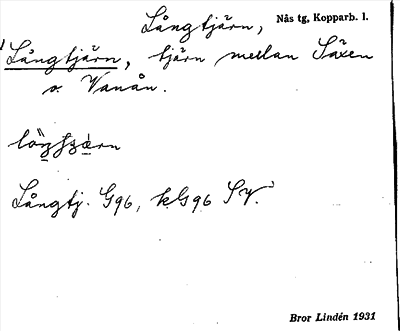 Långtjärn, Nås tg, Kopparb. l.
Långtjärn, tjärn mellan Säxen
o. Vanån.
Långtj. G96, kG96 SV.
Bror Lindén 1931